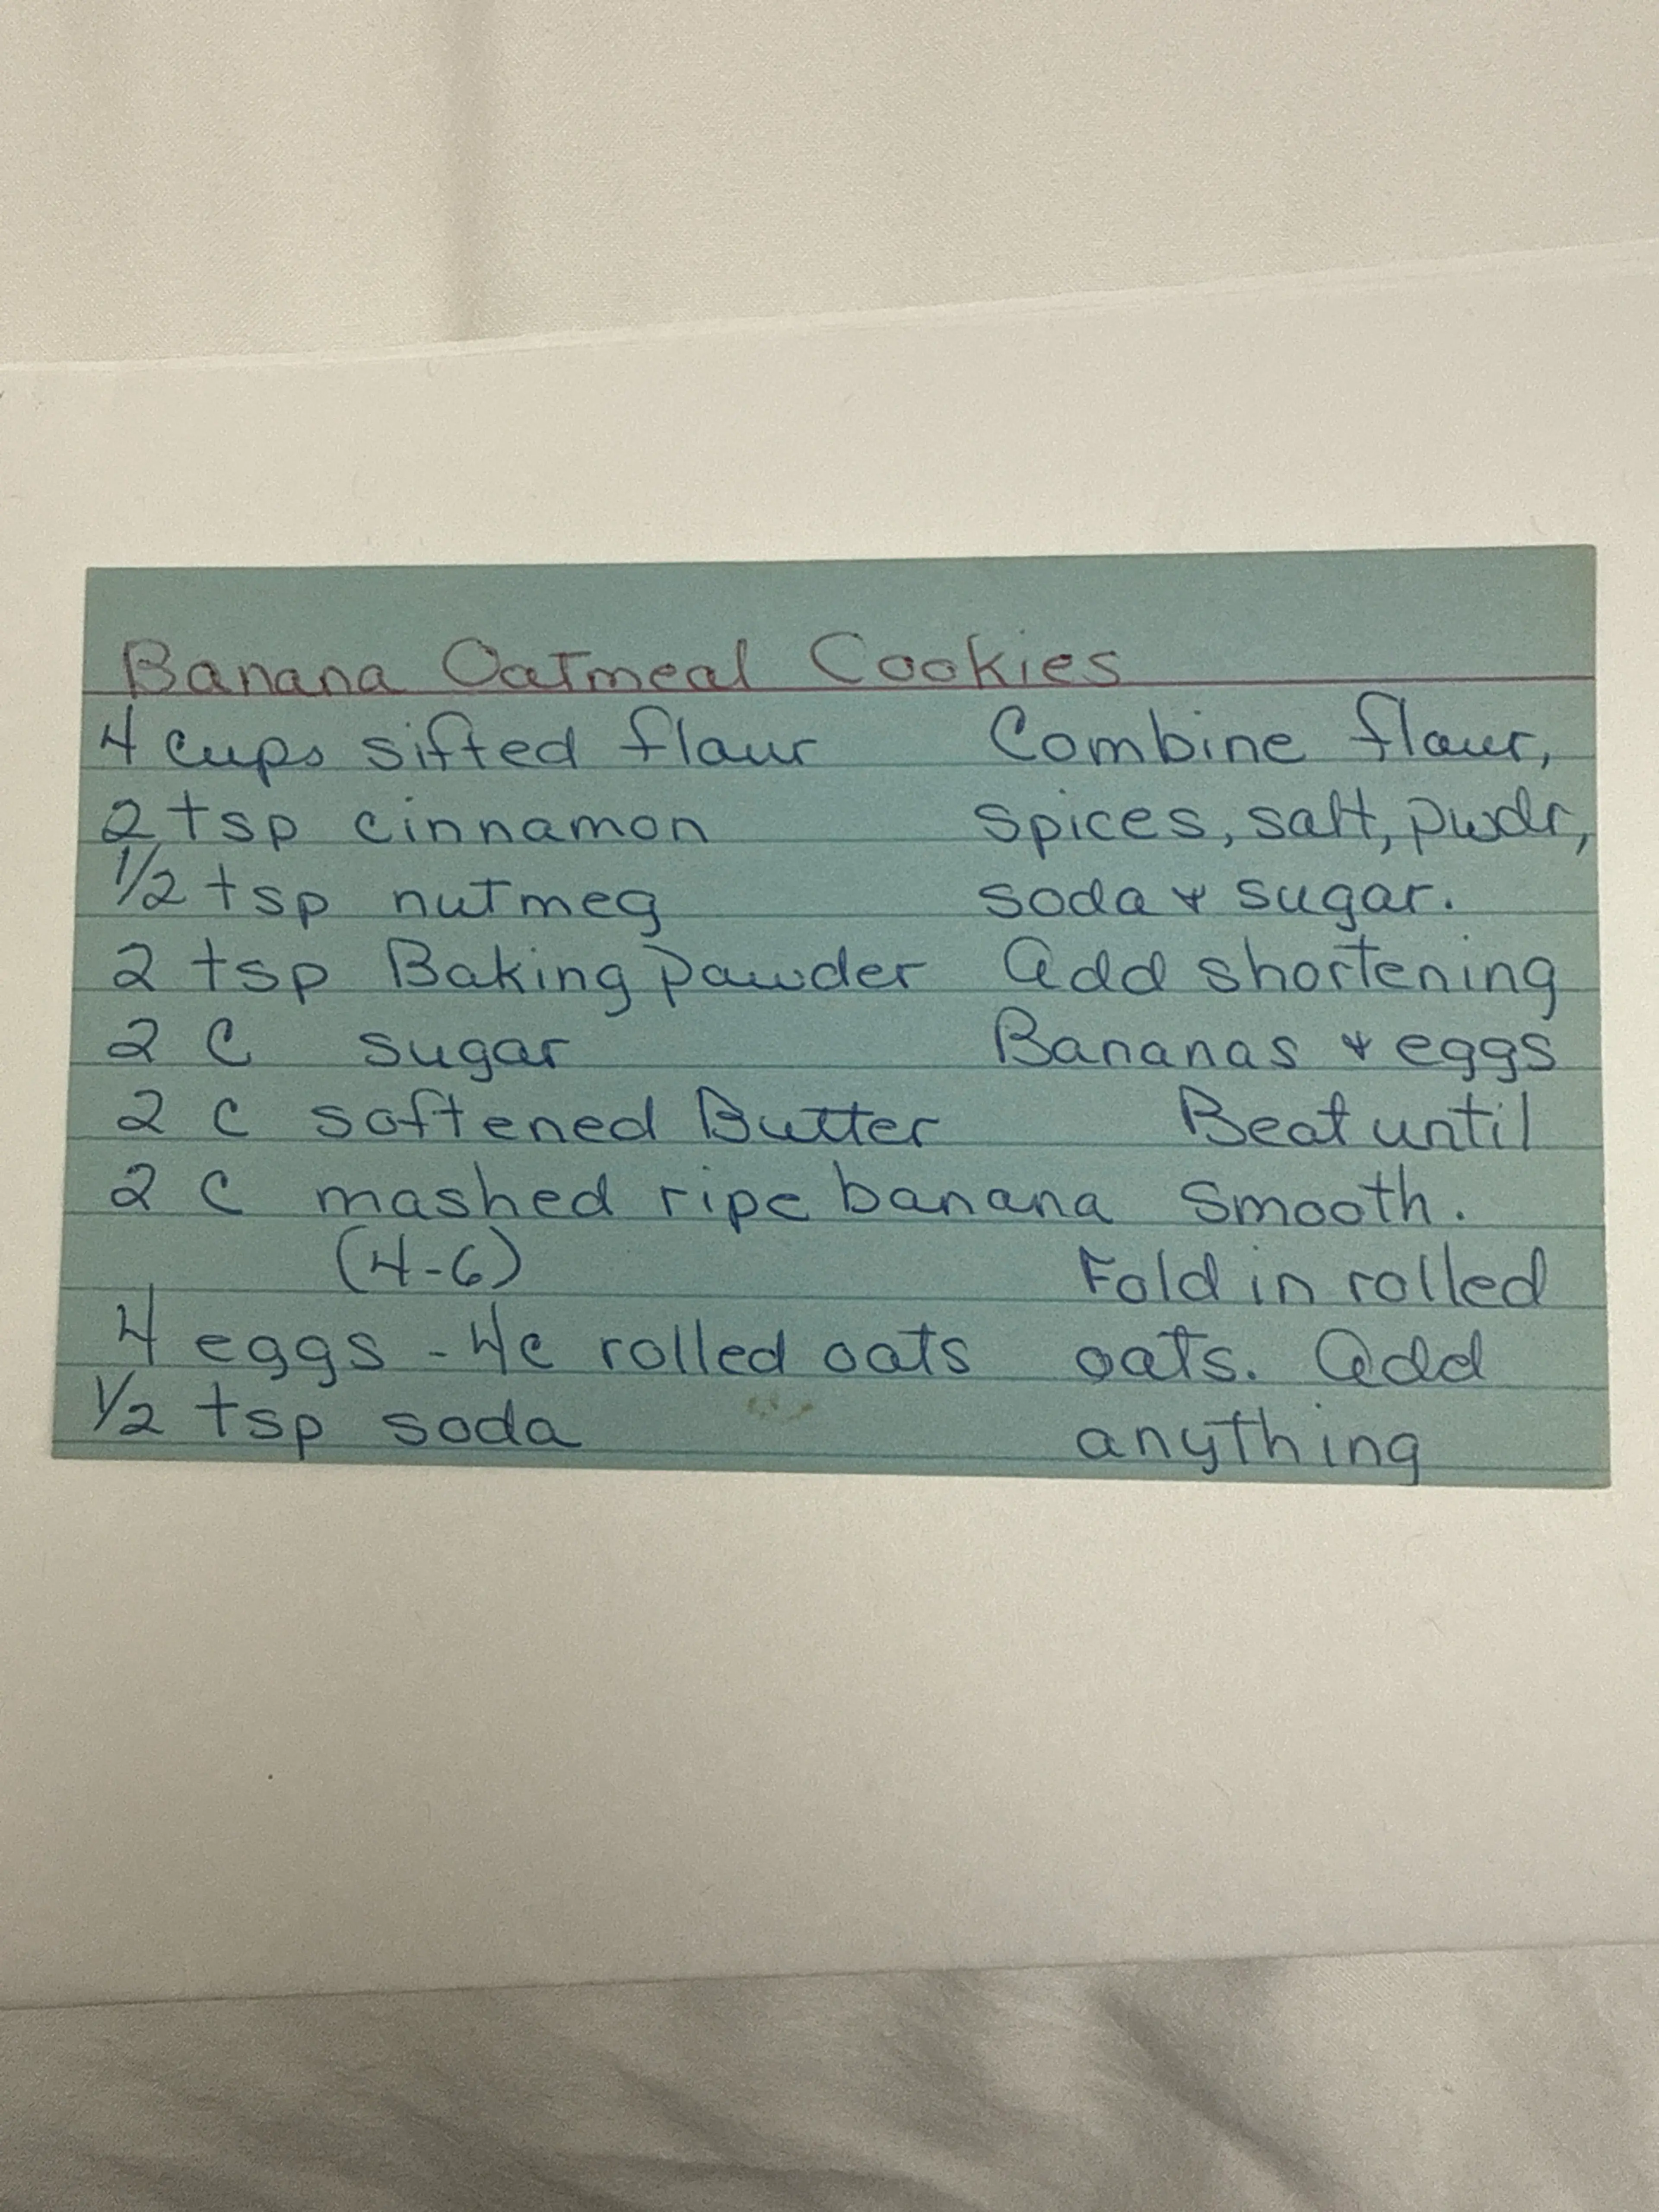 Banana Oatmeal Cookies
4 cups sifted flour
2 tsp cinnamon
1/2 tsp nutmeg
2 tsp Baking Powder
2 C sugar
2 C softened Butter
2 C mashed ripe banana
(4-6)
4 eggs - 4c rolled oats
1/2 tsp soda
Combine flour,
spices, salt, pwdr,
soda & sugar.
Add shortening
Bananas & eggs
Beat until
smooth.
Fold in rolled
oats. Add
anything